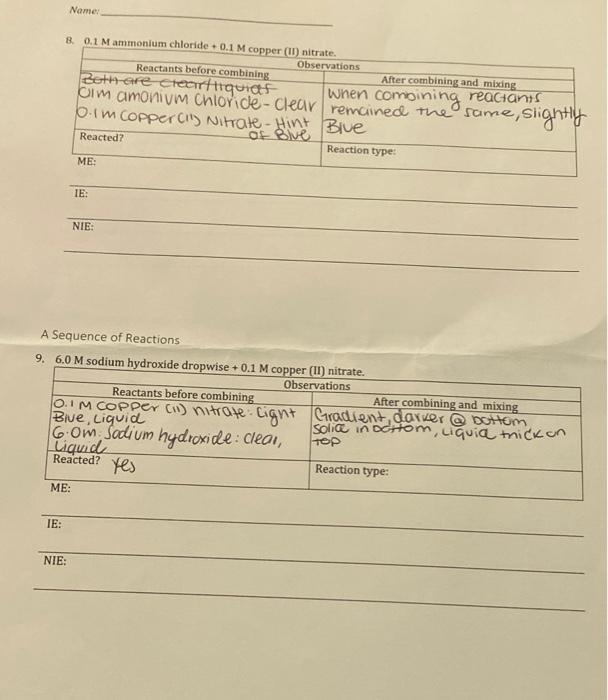 Name:
8. 0.1 M ammonium chloride + 0.1 M copper (II) nitrate.
Observations
Reactants before combining
After combining and mixing
Both are clear/liquids
0.1m amonium chloride - clear
0.1m copper (11) Nitrate - Hint of Blue
When combining reactants
remained the same, slightly
Blue
Reacted?
Reaction type:
ME:
IE:
NIE:
A Sequence of Reactions
9. 6.0 M sodium hydroxide dropwise + 0.1 M copper (II) nitrate.
Observations
Reactants before combining
After combining and mixing
0.1M copper (11) nitrate: Light
Blue, Liquid
6.0m: Sodium hydroxide: clear,
Liquid
Gradient, darker @ bottom
Solid in bottom, liquid thick on
top
Reacted? yes
Reaction type:
ME:
IE:
NIE: